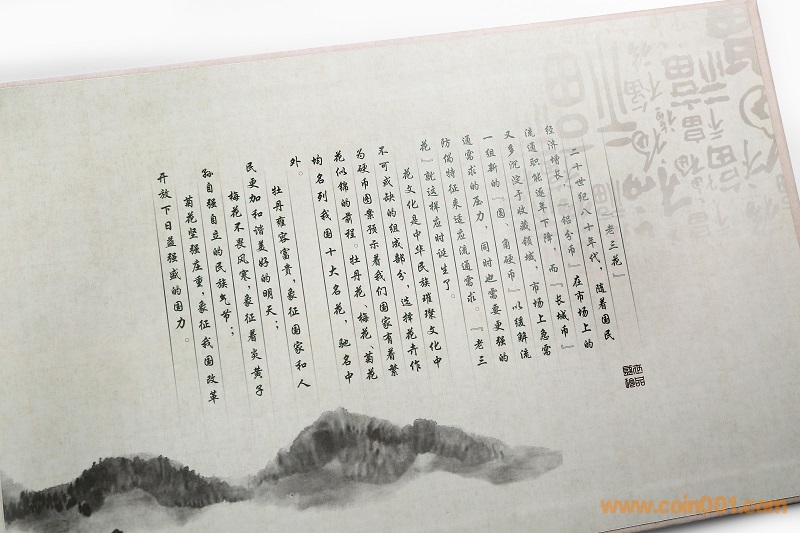 『老三花』
二十世纪八十年代，随着国民
经济增长，『铝分币』在市场上的
流通职能逐年下降，而『长城币』
又多沉淀于收藏领域，市场上急需
一组新的『圆、角硬币』以缓解流
通需求的压力，同时也需要更强的
防伪特征来适应流通需求。『老三
花』就这样应时诞生了。
花文化是中华民族璀璨文化中
不可或缺的组成部分，选择花卉作
为硬币图案预示着我们国家有着繁
花似锦的前程。牡丹花、梅花、菊花
均名列我国十大名花，驰名中
外。
牡丹雍容富贵，象征国家和人
民更加和谐美好的明天；
梅花不畏风寒，象征着炎黄子
孙自强自立的民族气节；
菊花坚强庄重，象征我国改革
开放下日益强盛的国力。
www.coin001.com